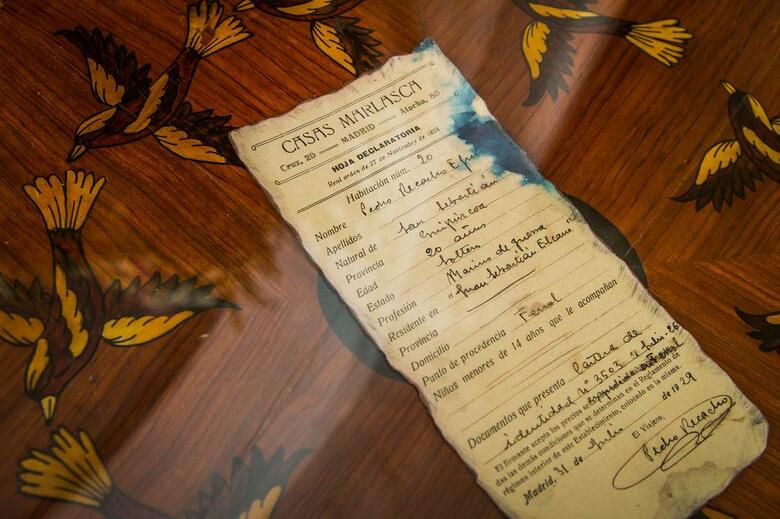 CASAS MARLASCA
Cruz, 20 — MADRID — Atocha,
HOJA DECLARATORIA
Real orden de 27 de Noviembre de 1858
Habitación núm. 20
Nombre Pedro Recacho
Apellidos
Natural de San Sebastián
Provincia Guipúzcoa
Edad 20 años
Estado Soltero
Profesión Marino de guerra
Residente en "Juan Sebastián Elcano"
Provincia
Domicilio
Punto de procedencia Ferrol
Niños menores de 14 años que le acompañan
Documentos que presenta Cartera de
identidad nº 3503
El firmante acepta los precios
das las demás condiciones que se determinan en el Reglamento de
régimen interior de este Establecimiento, colocado en la misma.
Madrid, 31 de Julio de 1929
El Viajero,
Pedro Recacho